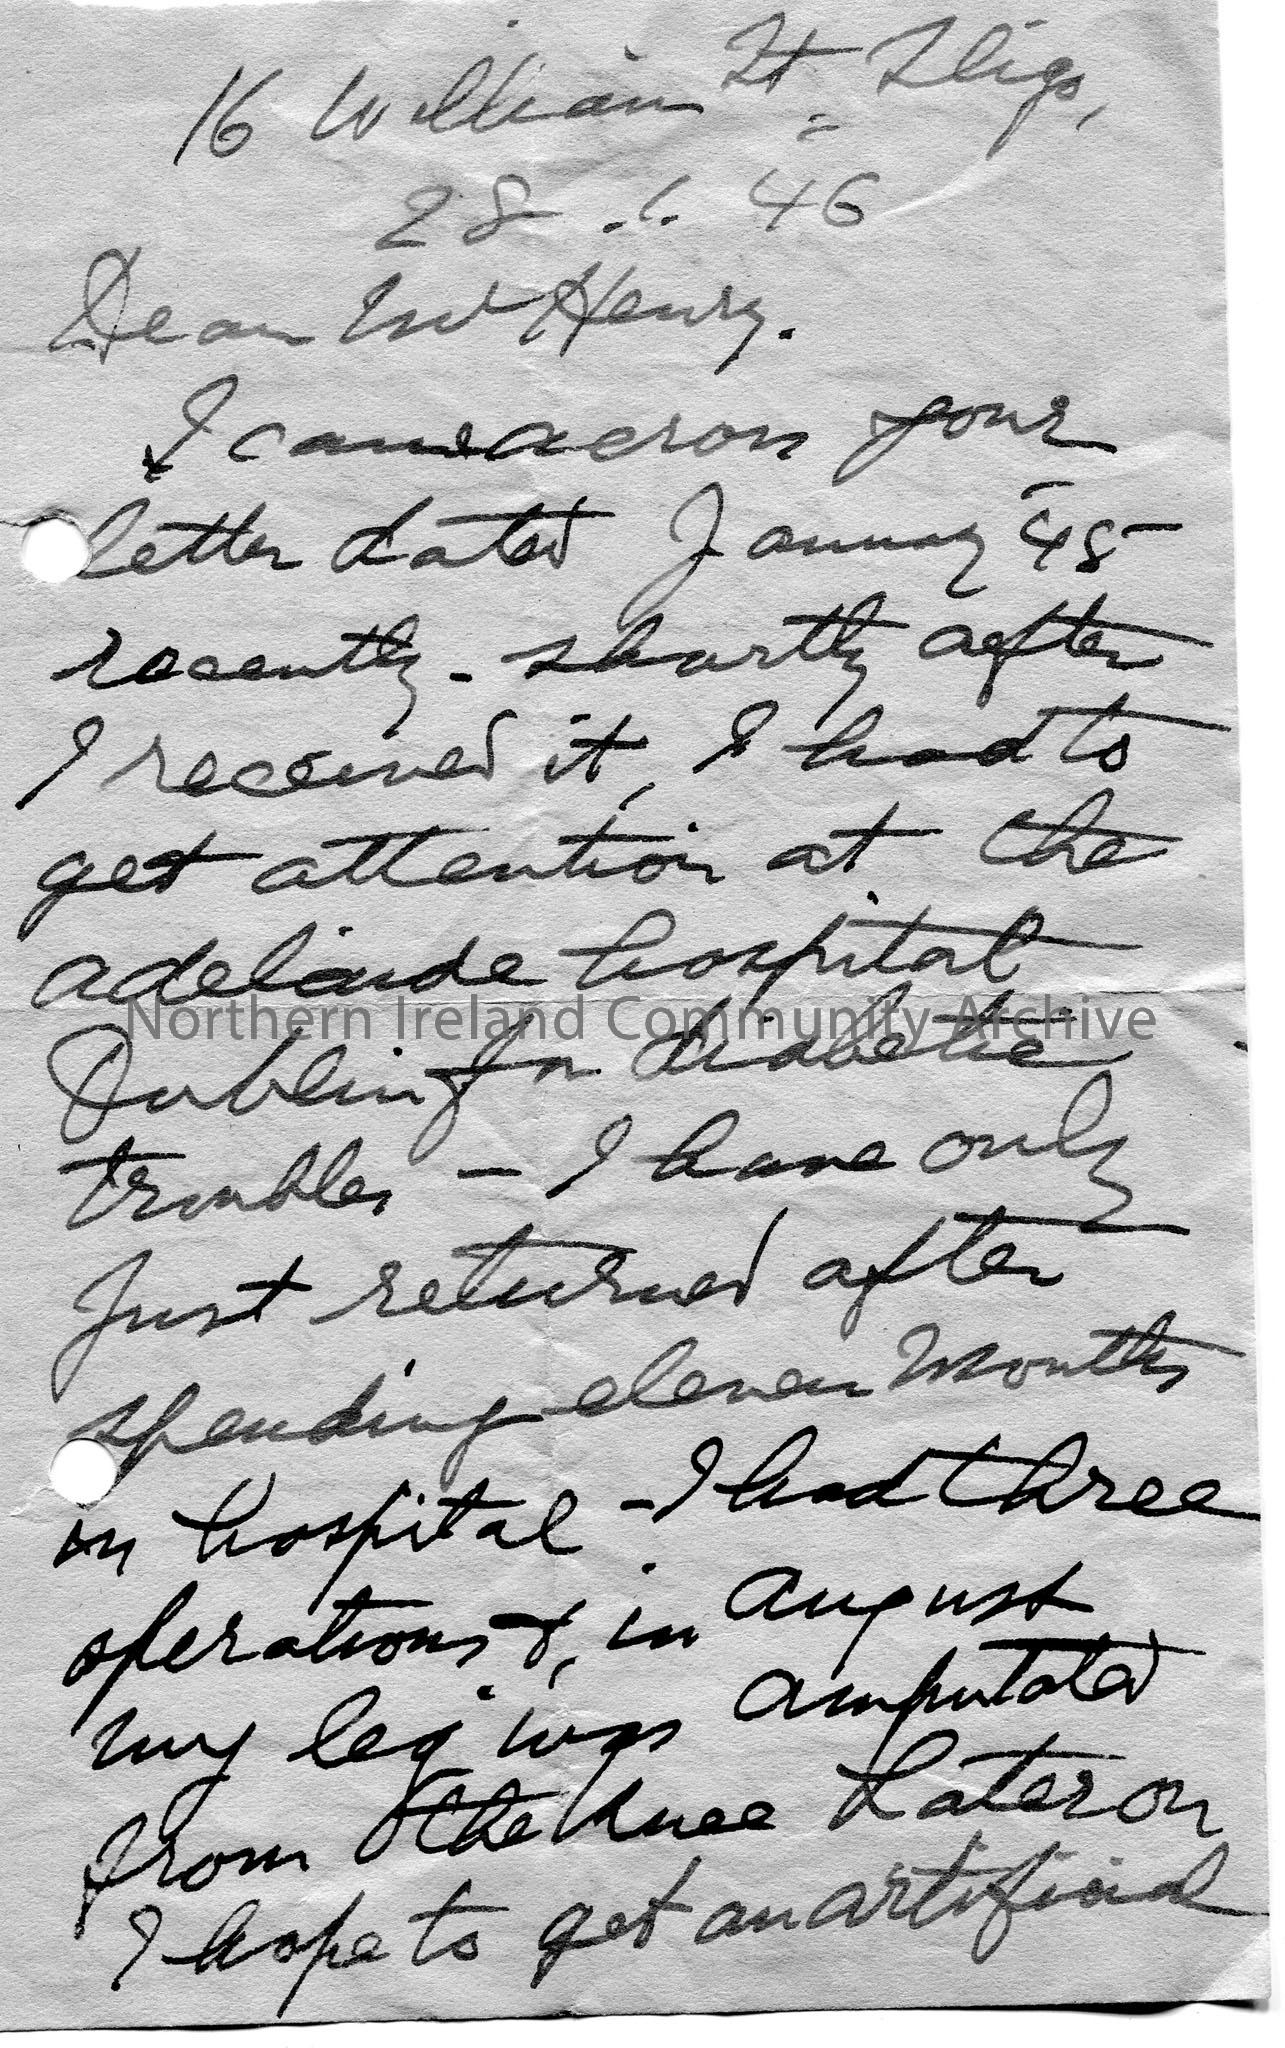 16 William St. Sligo,
28 . 1. 46
Dear Mr Henry.
I came across your
letter dated January '45
recently. shortly after
I received it, I had to
get attention at the
adelaide hospital
Northern Ireland Community Archive
Dublin for diabetic
troubles - I have only
Just returned after
spending eleven months
in hospital - I had three
operations &, in August
my leg was amputated
from the knee Later on
I hope to get an artificial